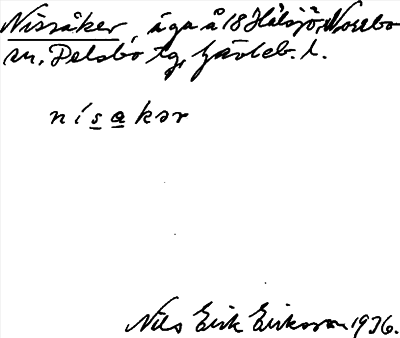 Nissåker, äga å 18 Hålsjö, Norrbo
sn, Delsbo tg, Gävleb. l.
nísakər
Nils Erik Eriksson 1936.